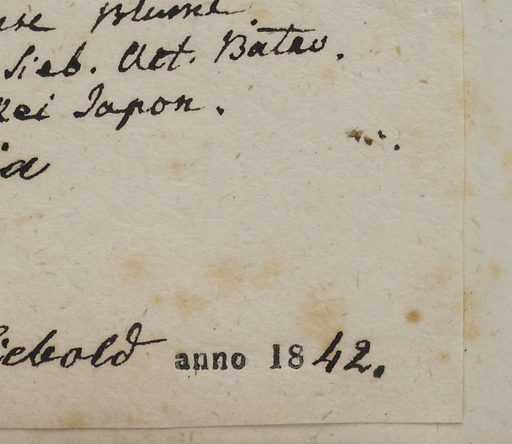 Blume.
Sieb. Act. Batav.
Kei Japon.
ia
Siebold anno 1842.